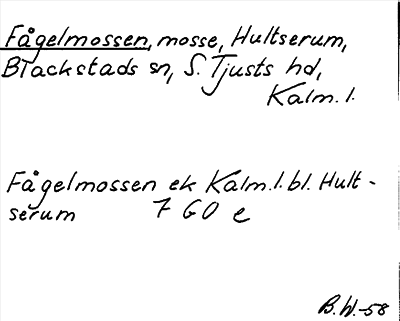 Fågelmossen, mosse, Hultserum,
Blackstads sn, S. Tjusts hd,
Kalm. l.
Fågelmossen ek Kalm. l. bl. Hult-
serum 7 GO e
B.W.-58